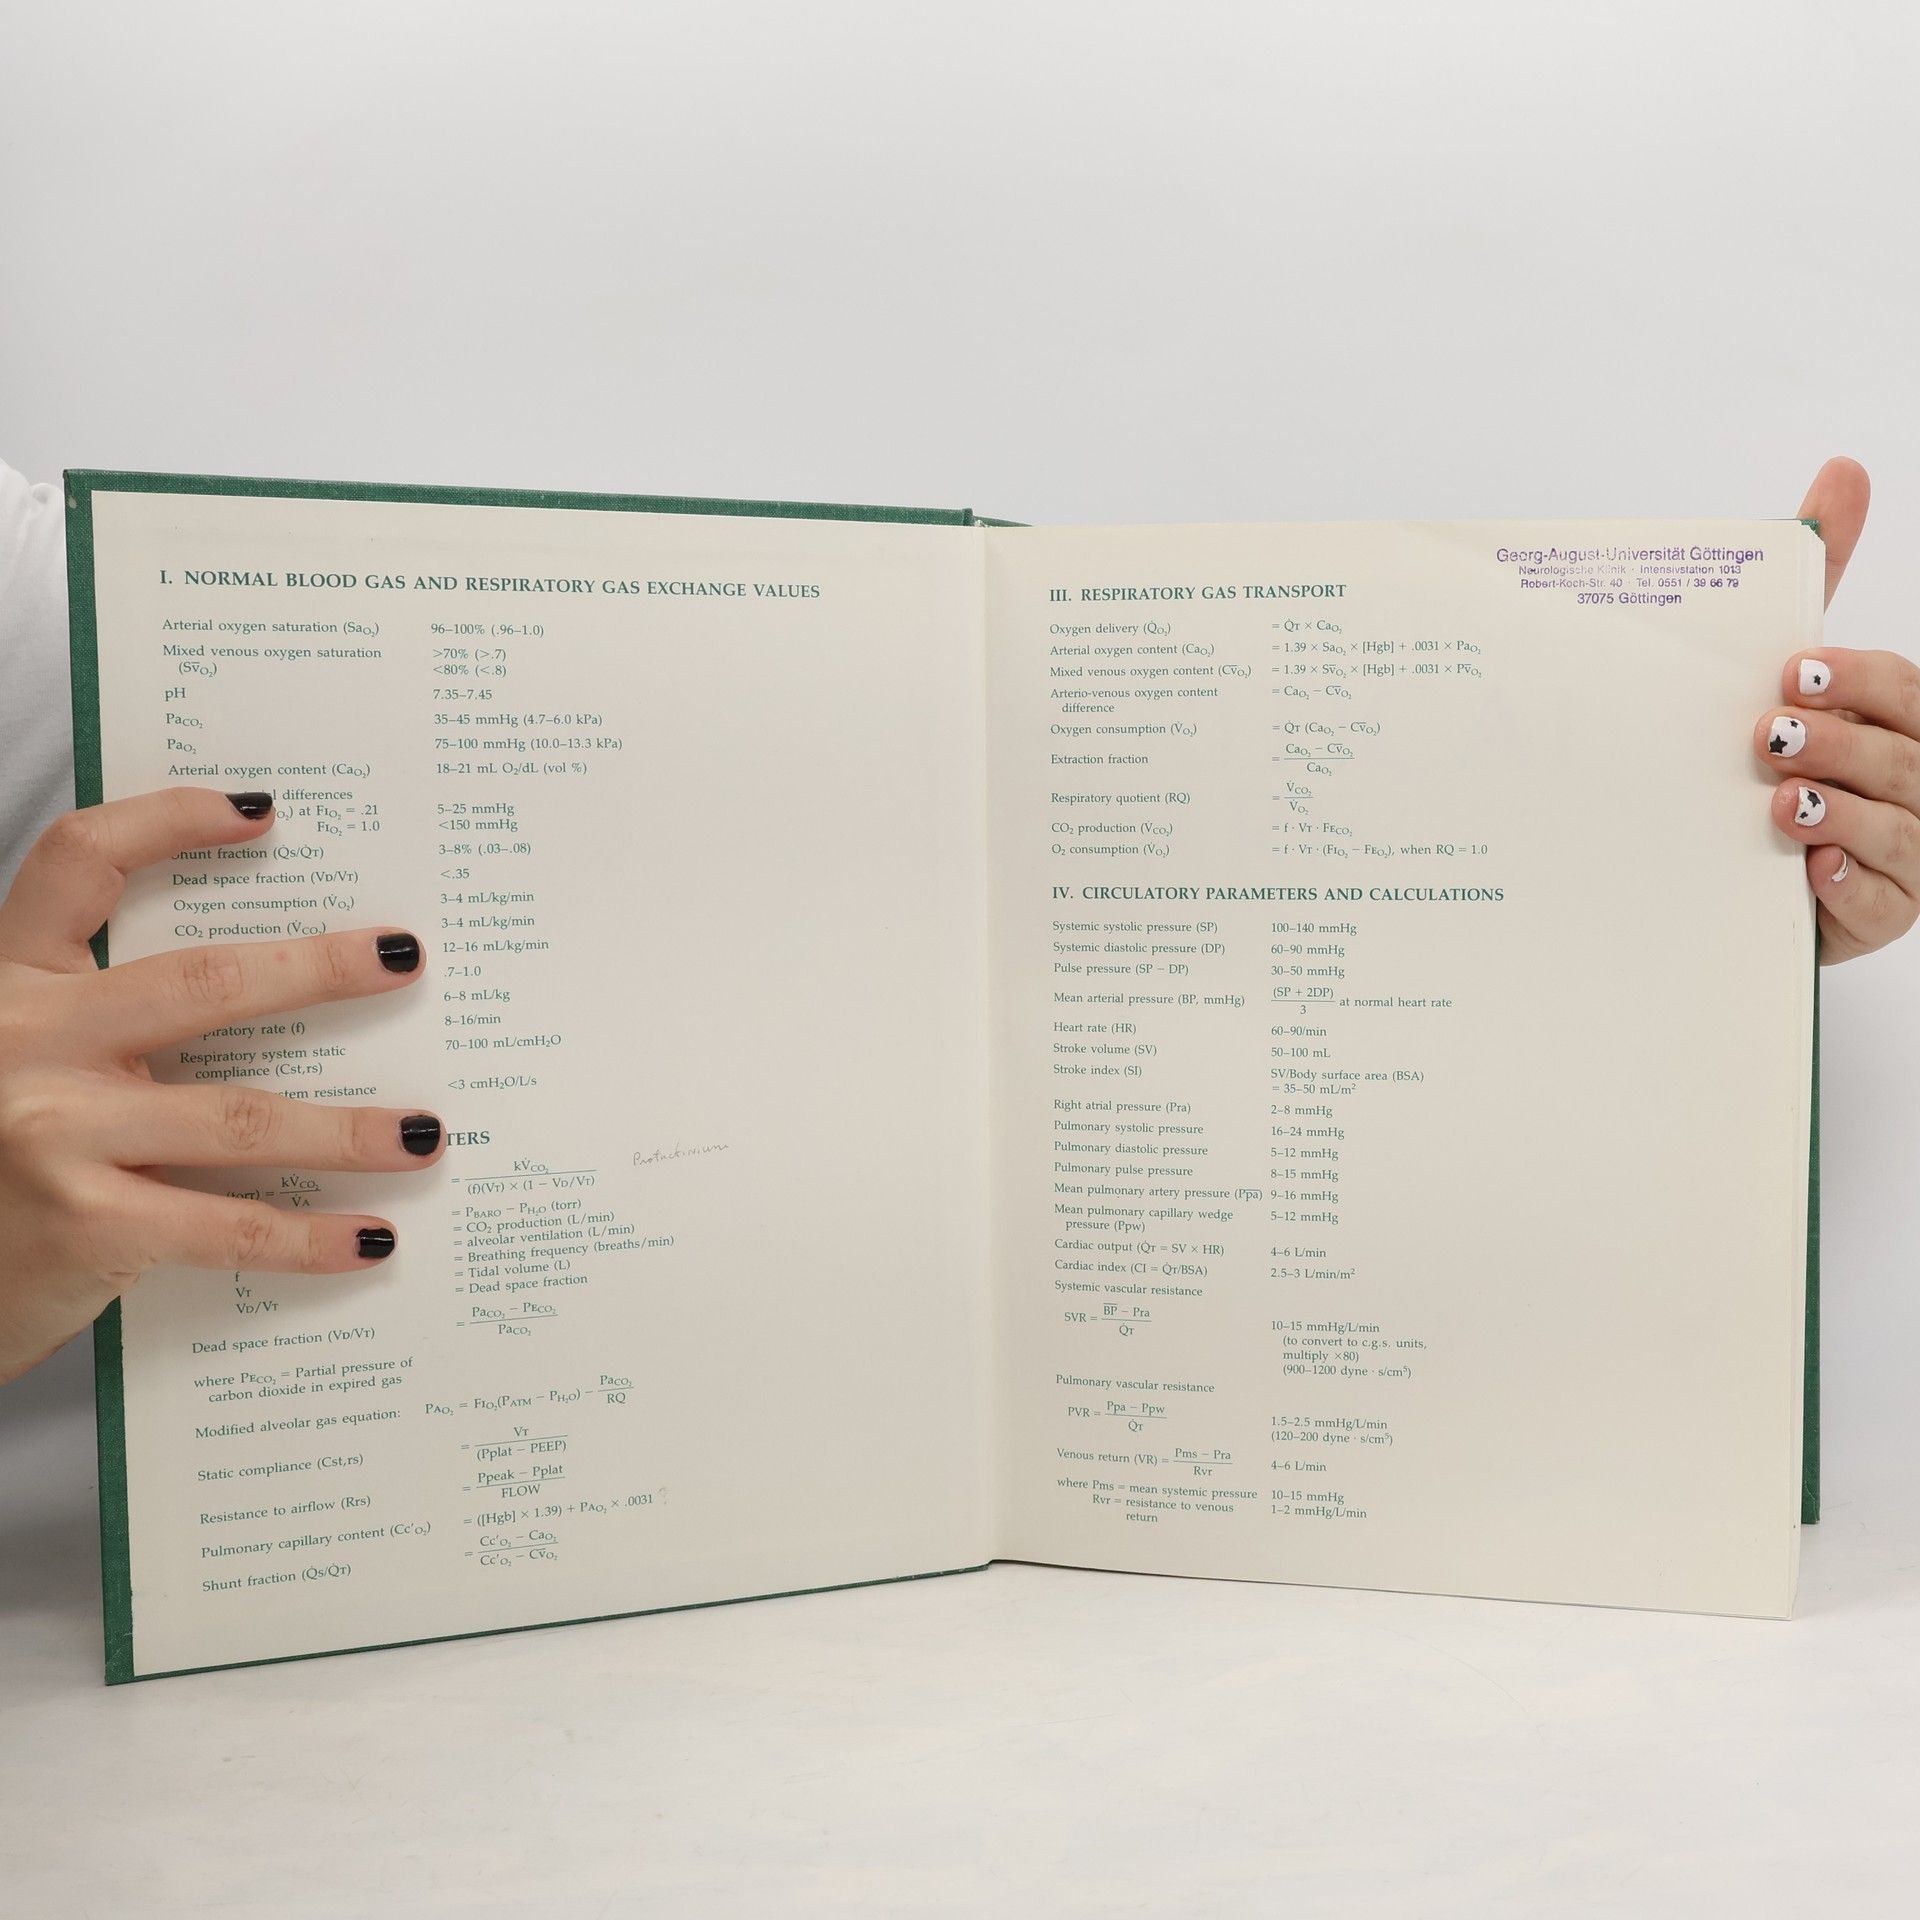 I. NORMAL BLOOD GAS AND RESPIRATORY GAS EXCHANGE VALUES
Arterial oxygen saturation (SaO₂) 96–100% (.96–1.0)
Mixed venous oxygen saturation >70% (>.7)
(Sv̄O₂) <80% (<.8)
pH 7.35–7.45
PaCO₂ 35–45 mmHg (4.7–6.0 kPa)
PaO₂ 75–100 mmHg (10.0–13.3 kPa)
Arterial oxygen content (CaO₂) 18–21 mL O₂/dL (vol %)
differences
O₂) at FIO₂ = .21 5–25 mmHg
FIO₂ = 1.0 <150 mmHg
Shunt fraction (Q̇s/Q̇T) 3–8% (.03–.08)
Dead space fraction (VD/VT) <.35
Oxygen consumption (V̇O₂) 3–4 mL/kg/min
CO₂ production (V̇CO₂) 3–4 mL/kg/min
12–16 mL/kg/min
.7–1.0
6–8 mL/kg
rate (f) 8–16/min
Respiratory system static 70–100 mL/cmH₂O
compliance (Cst,rs)
resistance <3 cmH₂O/L/s
TERS
(torr) = kV̇CO₂ / V̇A = kV̇CO₂ / (f)(VT) × (1 − VD/VT)
= PBARO − PH₂O (torr)
= CO₂ production (L/min)
= alveolar ventilation (L/min)
f = Breathing frequency (breaths/min)
VT = Tidal volume (L)
VD/VT = Dead space fraction
Dead space fraction (VD/VT) = PaCO₂ − PECO₂ / PaCO₂
where PECO₂ = Partial pressure of
carbon dioxide in expired gas
Modified alveolar gas equation: PAO₂ = FIO₂(PATM − PH₂O) − PaCO₂ / RQ
Static compliance (Cst,rs) = VT / (Pplat − PEEP)
Resistance to airflow (Rrs) = Ppeak − Pplat / FLOW
Pulmonary capillary content (Cc'O₂) = ([Hgb] × 1.39) + PAO₂ × .0031 ?
Shunt fraction (Q̇s/Q̇T) = Cc'O₂ − CaO₂ / Cc'O₂ − Cv̄O₂
Georg-August-Universität Göttingen
Neurologische Klinik · Intensivstation 1013
Robert-Koch-Str. 40 · Tel. 0551 / 39 66 79
37075 Göttingen
III. RESPIRATORY GAS TRANSPORT
Oxygen delivery (Q̇O₂) = Q̇T × CaO₂
Arterial oxygen content (CaO₂) = 1.39 × SaO₂ × [Hgb] + .0031 × PaO₂
Mixed venous oxygen content (Cv̄O₂) = 1.39 × Sv̄O₂ × [Hgb] + .0031 × Pv̄O₂
Arterio-venous oxygen content = CaO₂ − Cv̄O₂
difference
Oxygen consumption (V̇O₂) = Q̇T (CaO₂ − Cv̄O₂)
Extraction fraction = CaO₂ − Cv̄O₂ / CaO₂
Respiratory quotient (RQ) = V̇CO₂ / V̇O₂
CO₂ production (V̇CO₂) = f · VT · FECO₂
O₂ consumption (V̇O₂) = f · VT · (FIO₂ − FEO₂), when RQ = 1.0
IV. CIRCULATORY PARAMETERS AND CALCULATIONS
Systemic systolic pressure (SP) 100–140 mmHg
Systemic diastolic pressure (DP) 60–90 mmHg
Pulse pressure (SP − DP) 30–50 mmHg
Mean arterial pressure (BP, mmHg) (SP + 2DP) / 3 at normal heart rate
Heart rate (HR) 60–90/min
Stroke volume (SV) 50–100 mL
Stroke index (SI) SV/Body surface area (BSA)
= 35–50 mL/m²
Right atrial pressure (Pra) 2–8 mmHg
Pulmonary systolic pressure 16–24 mmHg
Pulmonary diastolic pressure 5–12 mmHg
Pulmonary pulse pressure 8–15 mmHg
Mean pulmonary artery pressure (P̄p̄ā) 9–16 mmHg
Mean pulmonary capillary wedge 5–12 mmHg
pressure (Ppw)
Cardiac output (Q̇T = SV × HR) 4–6 L/min
Cardiac index (CI = Q̇T/BSA) 2.5–3 L/min/m²
Systemic vascular resistance
SVR = B̄P̄ − Pra / Q̇T 10–15 mmHg/L/min
(to convert to c.g.s. units,
multiply ×80)
(900–1200 dyne · s/cm⁵)
Pulmonary vascular resistance
PVR = Ppa − Ppw / Q̇T 1.5–2.5 mmHg/L/min
(120–200 dyne · s/cm⁵)
Venous return (VR) = Pms − Pra / Rvr 4–6 L/min
where Pms = mean systemic pressure 10–15 mmHg
Rvr = resistance to venous 1–2 mmHg/L/min
return